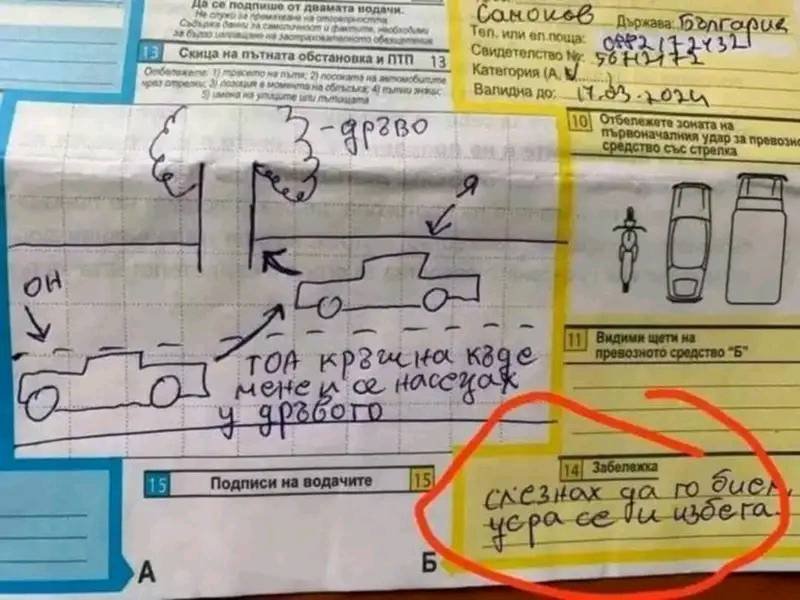 Да се подпише от двамата водачи.
Не служи за признаване на отговорността.
Съдържа данни за самоличност и фактите, необходими
за бързо изплащане на застрахователното обезщетение
13 Скица на пътната обстановка и ПТП 13
Отбележете: 1) трасето на пътя; 2) посоката на автомобилите
чрез стрелки; 3) позиция в момента на сблъсъка; 4) пътни знаци;
5) имена на улиците или пътищата
-дръво
Я
ОН
ТОА кръшна къде
мене и се насецах
у дръвото
15 Подписи на водачите 15
А
Б
Самоков Държава: България
Тел. или ел.поща: 0882172432
Свидетелство №: 56712172
Категория (А, В
Валидна до: 17.03.2024
10 Отбележете зоната на
първоначалния удар за превозно
средство със стрелка
11 Видими щети на
превозното средство "Б"
14 Забележка
слезнах да го бием,
усра се и избега.